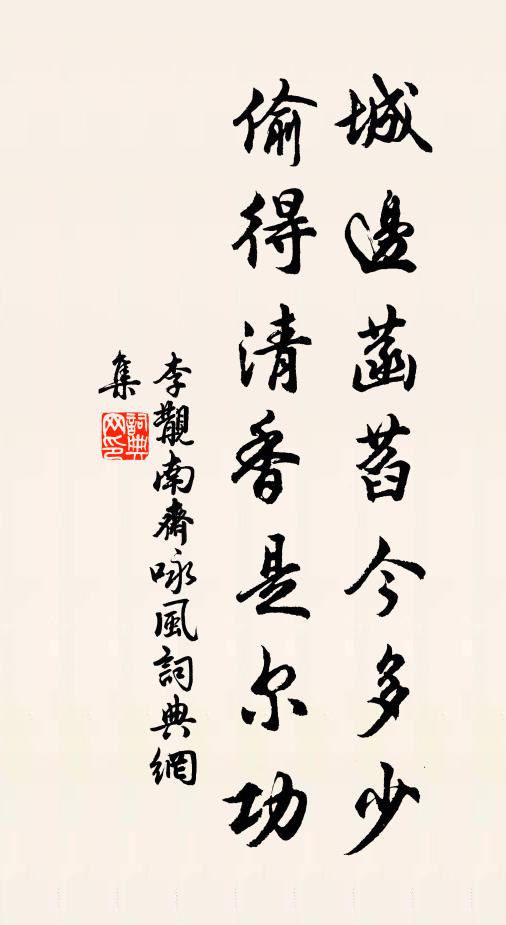 城邊菡萏今多少
偷得清香是尔功
李觀南齋咏風詞典網
集
詞典
网印